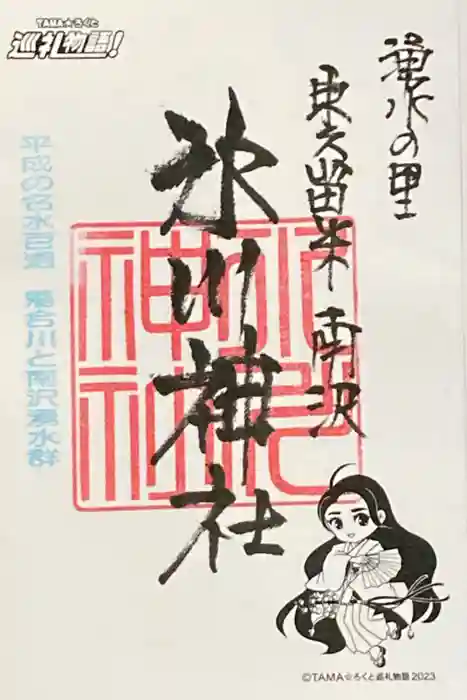 TAMA☆ろくと
巡礼物語!
湧水の里
東久留米 南沢
氷川神社
氷川神社
平成の名水百選 落合川と南沢湧水群
©TAMA☆ろくと巡礼物語 2023